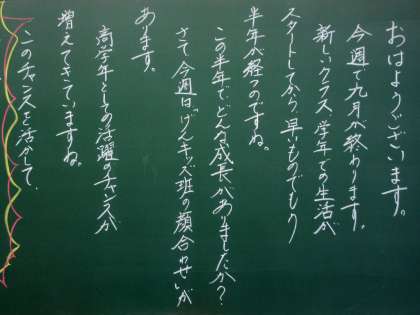 おはようございます。
今週で九月が終わります。
新しいクラス、学年での生活が
スタートしてから、早いものでもう
半年が経つのですね。
この半年でどんな成長がありましたか？
さて今週は「げんキッズ班の顔合わせ」が
あります。
高学年としての活躍のチャンスが
増えてきていますね。
このチャンスを活かして、